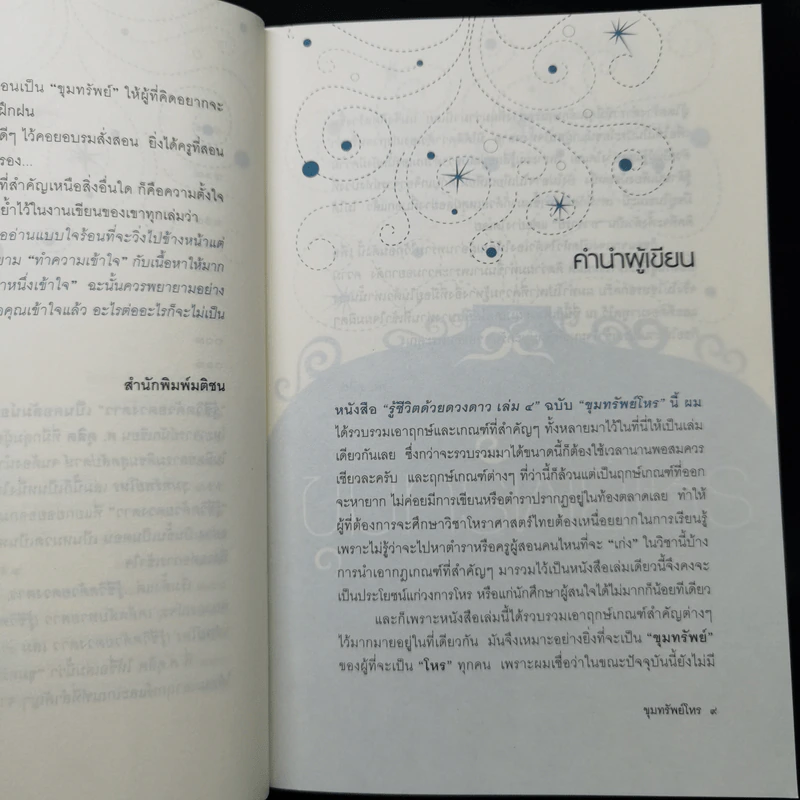 อนเป็น “ขุมทรัพย์” ให้ผู้ที่คิดอยากจะ
ฝึกฝน
ดีๆ ไว้คอยอบรมสั่งสอน ยิ่งได้ครูที่สอน
รอง...
ที่สำคัญเหนือสิ่งอื่นใด ก็คือความตั้งใจ
ย้ำไว้ในงานเขียนของเขาทุกเล่มว่า
ออ่านแบบใจร้อนที่จะวิ่งไปข้างหน้าแต่
ยาม “ทำความเข้าใจ” กับเนื้อหาให้มาก
าหนึ่งเข้าใจ” ฉะนั้นควรพยายามอย่าง
อคุณเข้าใจแล้ว อะไรต่ออะไรก็จะไม่เป็น
สำนักพิมพ์มติชน
คำนำผู้เขียน
หนังสือ “รู้ชีวิตด้วยดวงดาว เล่ม ๔” ฉบับ “ขุมทรัพย์โหร” นี้ ผม
ได้รวบรวมเอาฤกษ์และเกณฑ์ที่สำคัญๆ ทั้งหลายมาไว้ในที่นี่ให้เป็นเล่ม
เดียวกันเลย ซึ่งกว่าจะรวบรวมมาได้ขนาดนี้ก็ต้องใช้เวลานานพอสมควร
เชียวละครับ และฤกษ์เกณฑ์ต่างๆ ที่ว่านี้ก็ล้วนแต่เป็นฤกษ์เกณฑ์ที่ออก
จะหายาก ไม่ค่อยมีการเขียนหรือตำราปรากฏอยู่ในท้องตลาดเลย ทำให้
ผู้ที่ต้องการจะศึกษาวิชาโหราศาสตร์ไทยต้องเหนื่อยยากในการเรียนรู้
เพราะไม่รู้ว่าจะไปหาตำราหรือครูผู้สอนคนไหนที่จะ “เก่ง” ในวิชานี้บ้าง
การนำเอากฎเกณฑ์ที่สำคัญๆ มารวมไว้เป็นหนังสือเล่มเดียวนี้จึงคงจะ
เป็นประโยชน์แก่วงการโหร หรือแก่นักศึกษาผู้สนใจได้ไม่มากก็น้อยทีเดียว
และก็เพราะหนังสือเล่มนี้ได้รวบรวมเอาฤกษ์เกณฑ์สำคัญต่างๆ
ไว้มากมายอยู่ในที่เดียวกัน มันจึงเหมาะอย่างยิ่งที่จะเป็น “ขุมทรัพย์”
ของผู้ที่จะเป็น “โหร” ทุกคน เพราะผมเชื่อว่าในขณะปัจจุบันนี้ยังไม่มี
ขุมทรัพย์โหร ๙